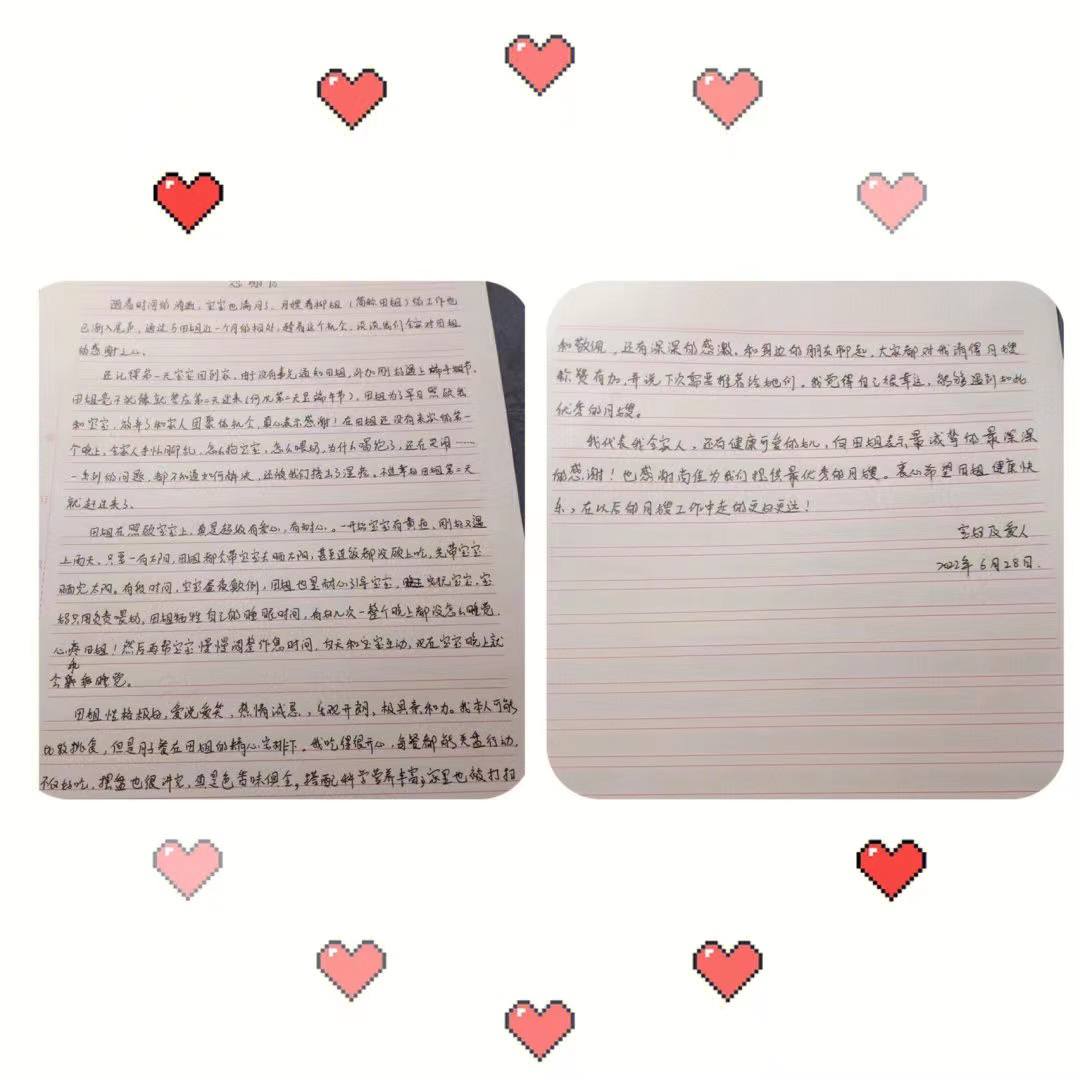 感谢信
随着时间的消逝，宝宝也满月了，月嫂香柳姐（简称田姐）的工作也
已渐入尾声，通过与田姐近一个月的相处，趁着这个机会，谈谈我们全家对田姐
的感谢之心。
还记得第一天宝宝回到家，由于没有事先通知田姐，外加刚好遇上端午时节，
田姐毫不犹豫就答应第二天过来（何况第二天是端午节），田姐为了早日照顾我
和宝宝，放弃了和家人团聚的机会，真心表示感谢！在田姐还没有来家的第一
个晚上，全家人手忙脚乱，怎么抱宝宝，怎么喂奶，为什么喝完了，还在哭闹……
一系列的问题，都不知道如何解决，还给我们搭上了深夜。不过幸好田姐第二天
就赶过来了。
田姐在照顾宝宝上，真是超级有爱心，有耐心。一开始宝宝有黄疸，刚好又遇
上雨天，只要一有太阳，田姐都会带宝宝去晒太阳，甚至连饭都没顾上吃，先带宝宝
晒完太阳。有段时间，宝宝昼夜颠倒，田姐也是耐心引导宝宝，安抚宝宝，宝
妈只用负责喂奶，田姐牺牲自己的睡眠时间，有好几次一整个晚上都没怎么睡觉，
心疼田姐！然后再帮宝宝慢慢调整作息时间，白天和宝宝互动，现在宝宝晚上就
会乖乖睡觉。
田姐性格极好，爱说爱笑，热情诚恳，乐观开朗，极具亲和力。我本人可能
比较挑食，但是月子餐在田姐的精心安排下，我吃得很开心，每餐都能光盘行动，
不仅好吃，摆盘也很讲究，真是色香味俱全，搭配科学营养丰富；家里也被打扫
和敬佩，还有深深的感激，和身边的朋友聊起，大家都对我请得月嫂
称赞有加，并说下次需要推荐给她们。我觉得自己很幸运，能够遇到如此
优秀的月嫂。
我代表我全家人，还有健康可爱的，向田姐表示最诚挚的最深深
的感谢！也感谢尚佳为我们提供最优秀的月嫂。衷心希望田姐健康快
乐，在以后的月嫂工作中走的更好更远！
宝妈及爱人
2022年6月28日.